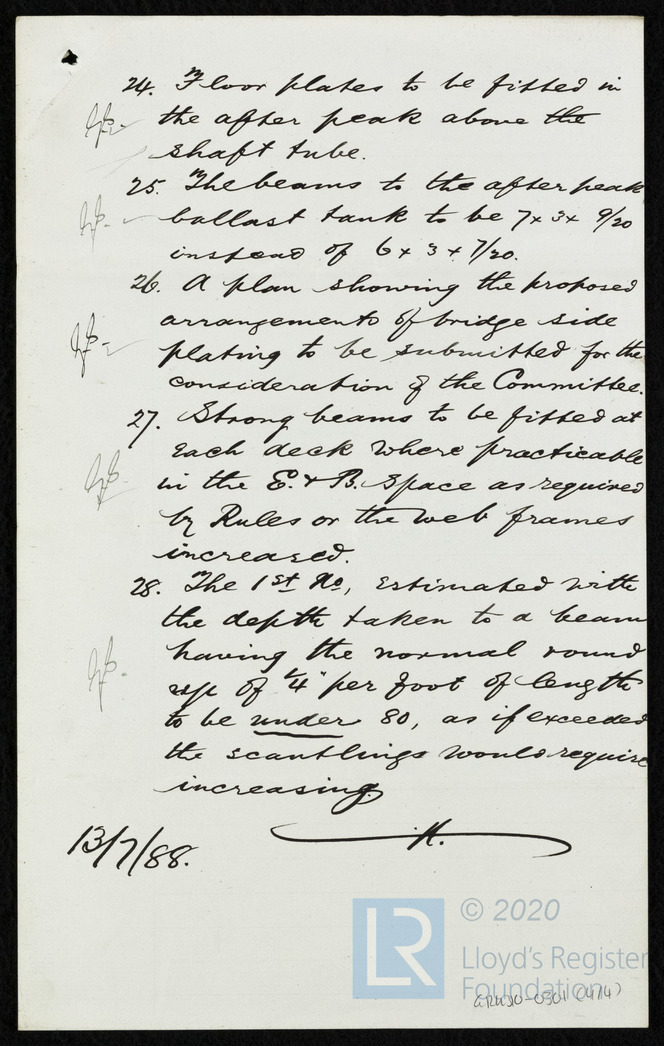 24. Floor plates to be fitted in
the after peak above the
shaft tube.
25. The beams to the after peak
ballast tank to be 7 x 3 x 9/20
instead of 6 x 3 x 7/20.
26. A plan showing the proposed
arrangements of bridge side
plating to be submitted for the
consideration of the Committee.
27. Strong beams to be fitted at
each deck where practicable
in the E. & B. space as required
by Rules or the web frames
increased.
28. The 1st No, estimated with
the depth taken to a beam
having the normal round
up of 1/4" per foot of length
to be under 80, as if exceeded
the scantlings would require
increasing.
H.
13/7/88.
LR
© 2020
Lloyd's Register
Foundation